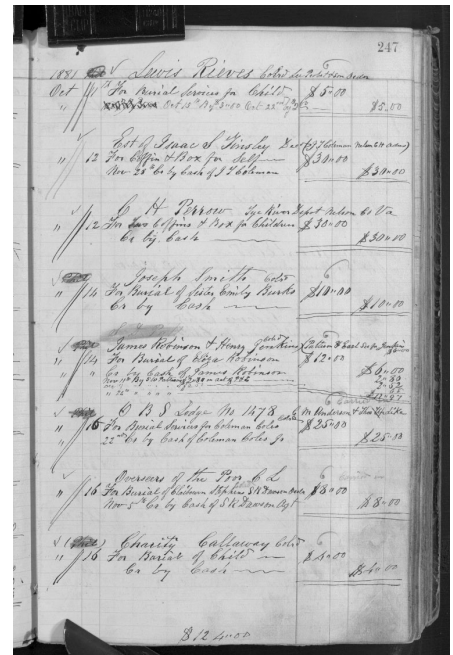 247
1881 Lewis Rieves Cold
Oct 11th For Burial Services for Child $5"00
Oct 15th By $3"00 Oct 22nd by $2 $5.00
Est of Isaac S Tinsley Dec (J T Coleman Nelson Co Admr)
" 12 For Coffin & Box for Self $30"00
Nov 28th Cr by Cash of J T Coleman $30"00
C H Perrow Tye River Depot Nelson Co Va
" 12 For Two Coffins & Box for Children $30"00
Cr by Cash $30"00
Joseph Smith Cold
" 14 For Burial of Sister Emily Burks $10"00
Cr by Cash $10"00
James Robinson & Henry Jenkins Cold
" 14 For Burial of Eliza Robinson $12"00
" Cr by Cash of James Robinson
O B S Lodge No 1478 Cold M Anderson &
" 15 For Burial Services for Coleman Coles $25"00
22nd Cr by Cash of Coleman Coles Jr $25"00
Overseers of the Poor C L
" 16 For Burial of Stephens S K Dawson $8"00
Nov 5th Cr by Cash of S K Dawson Agt $8"00
Charity Callaway Cold
" 16 For Burial of Child $4"00
Cr by Cash $4"00
$124"00